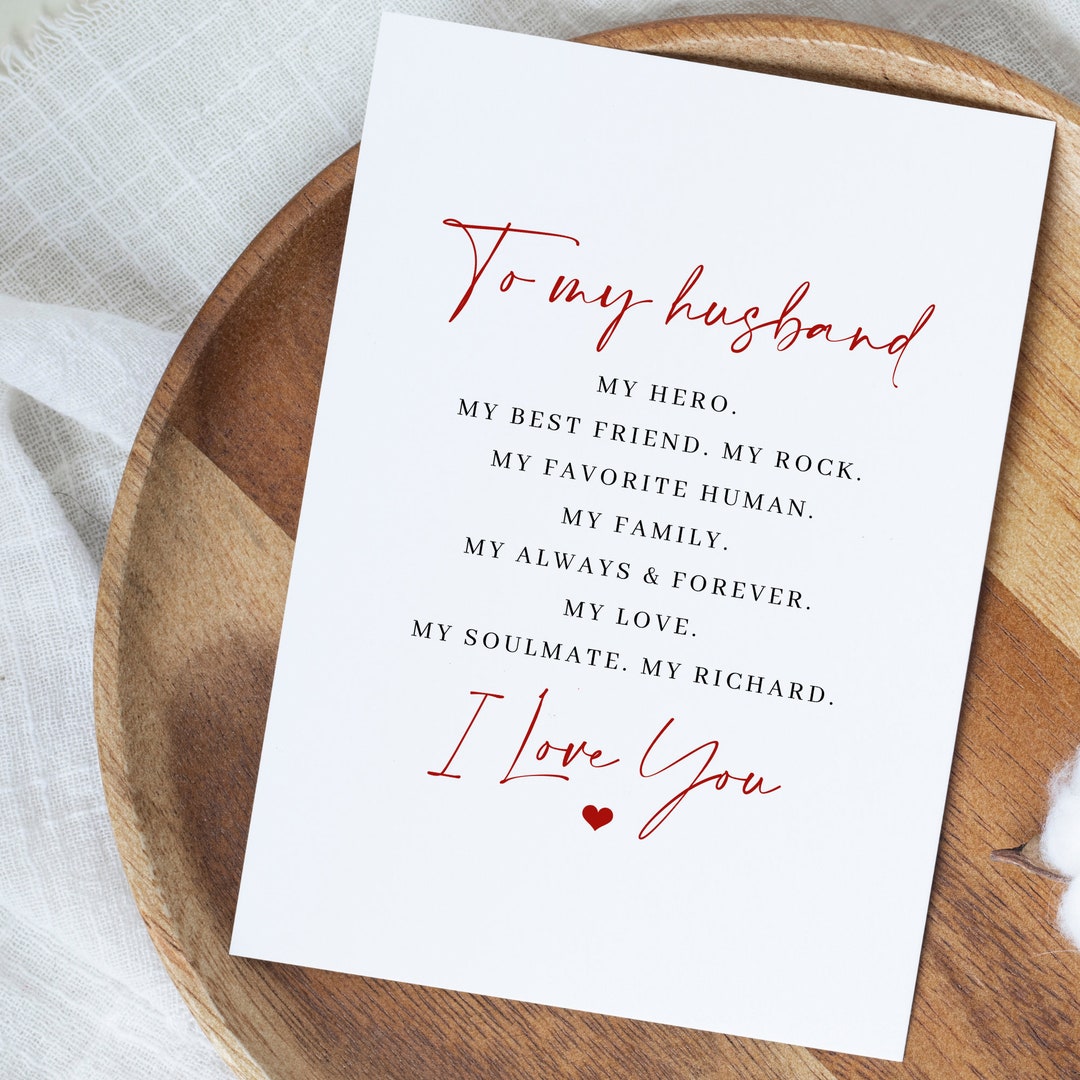 To my husband
MY HERO.
MY BEST FRIEND. MY ROCK.
MY FAVORITE HUMAN.
MY FAMILY.
MY ALWAYS & FOREVER.
MY LOVE.
MY SOULMATE. MY RICHARD.
I Love You